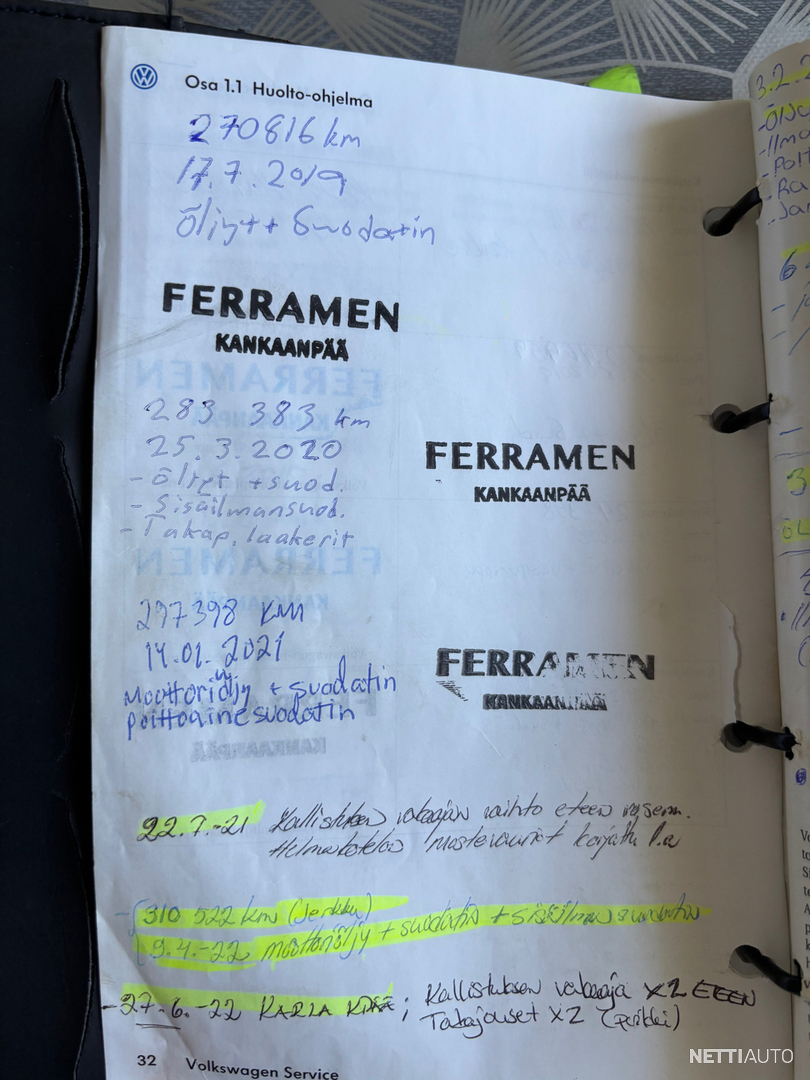 Osa 1.1 Huolto-ohjelma
270816 km
17.7.2019
Öljyt + Suodatin
FERRAMEN
KANKAANPÄÄ
283 383 km
25.3.2020
- öljyt + suod.
- Sisäilmansuod.
- Takap. laakerit
FERRAMEN
KANKAANPÄÄ
297398 KM
14.01.2021
Moottoriöljy + suodatin
polttoainesuodatin
FERRAMEN
KANKAANPÄÄ
22.7.-21 Kallistuksen vakaajan vaihto eteen vasem.
Helmakotelon ruostevauriot korjattu
310 522 km (Jerkku)
9.4.-22 moottoriöljy + suodatin + sisäilman suodatin
-27.6.-22 KARLA ; Kallistuksen vakaaja X2 ETEEN
Takajouset X2
32 Volkswagen Service
NETTIAUTO